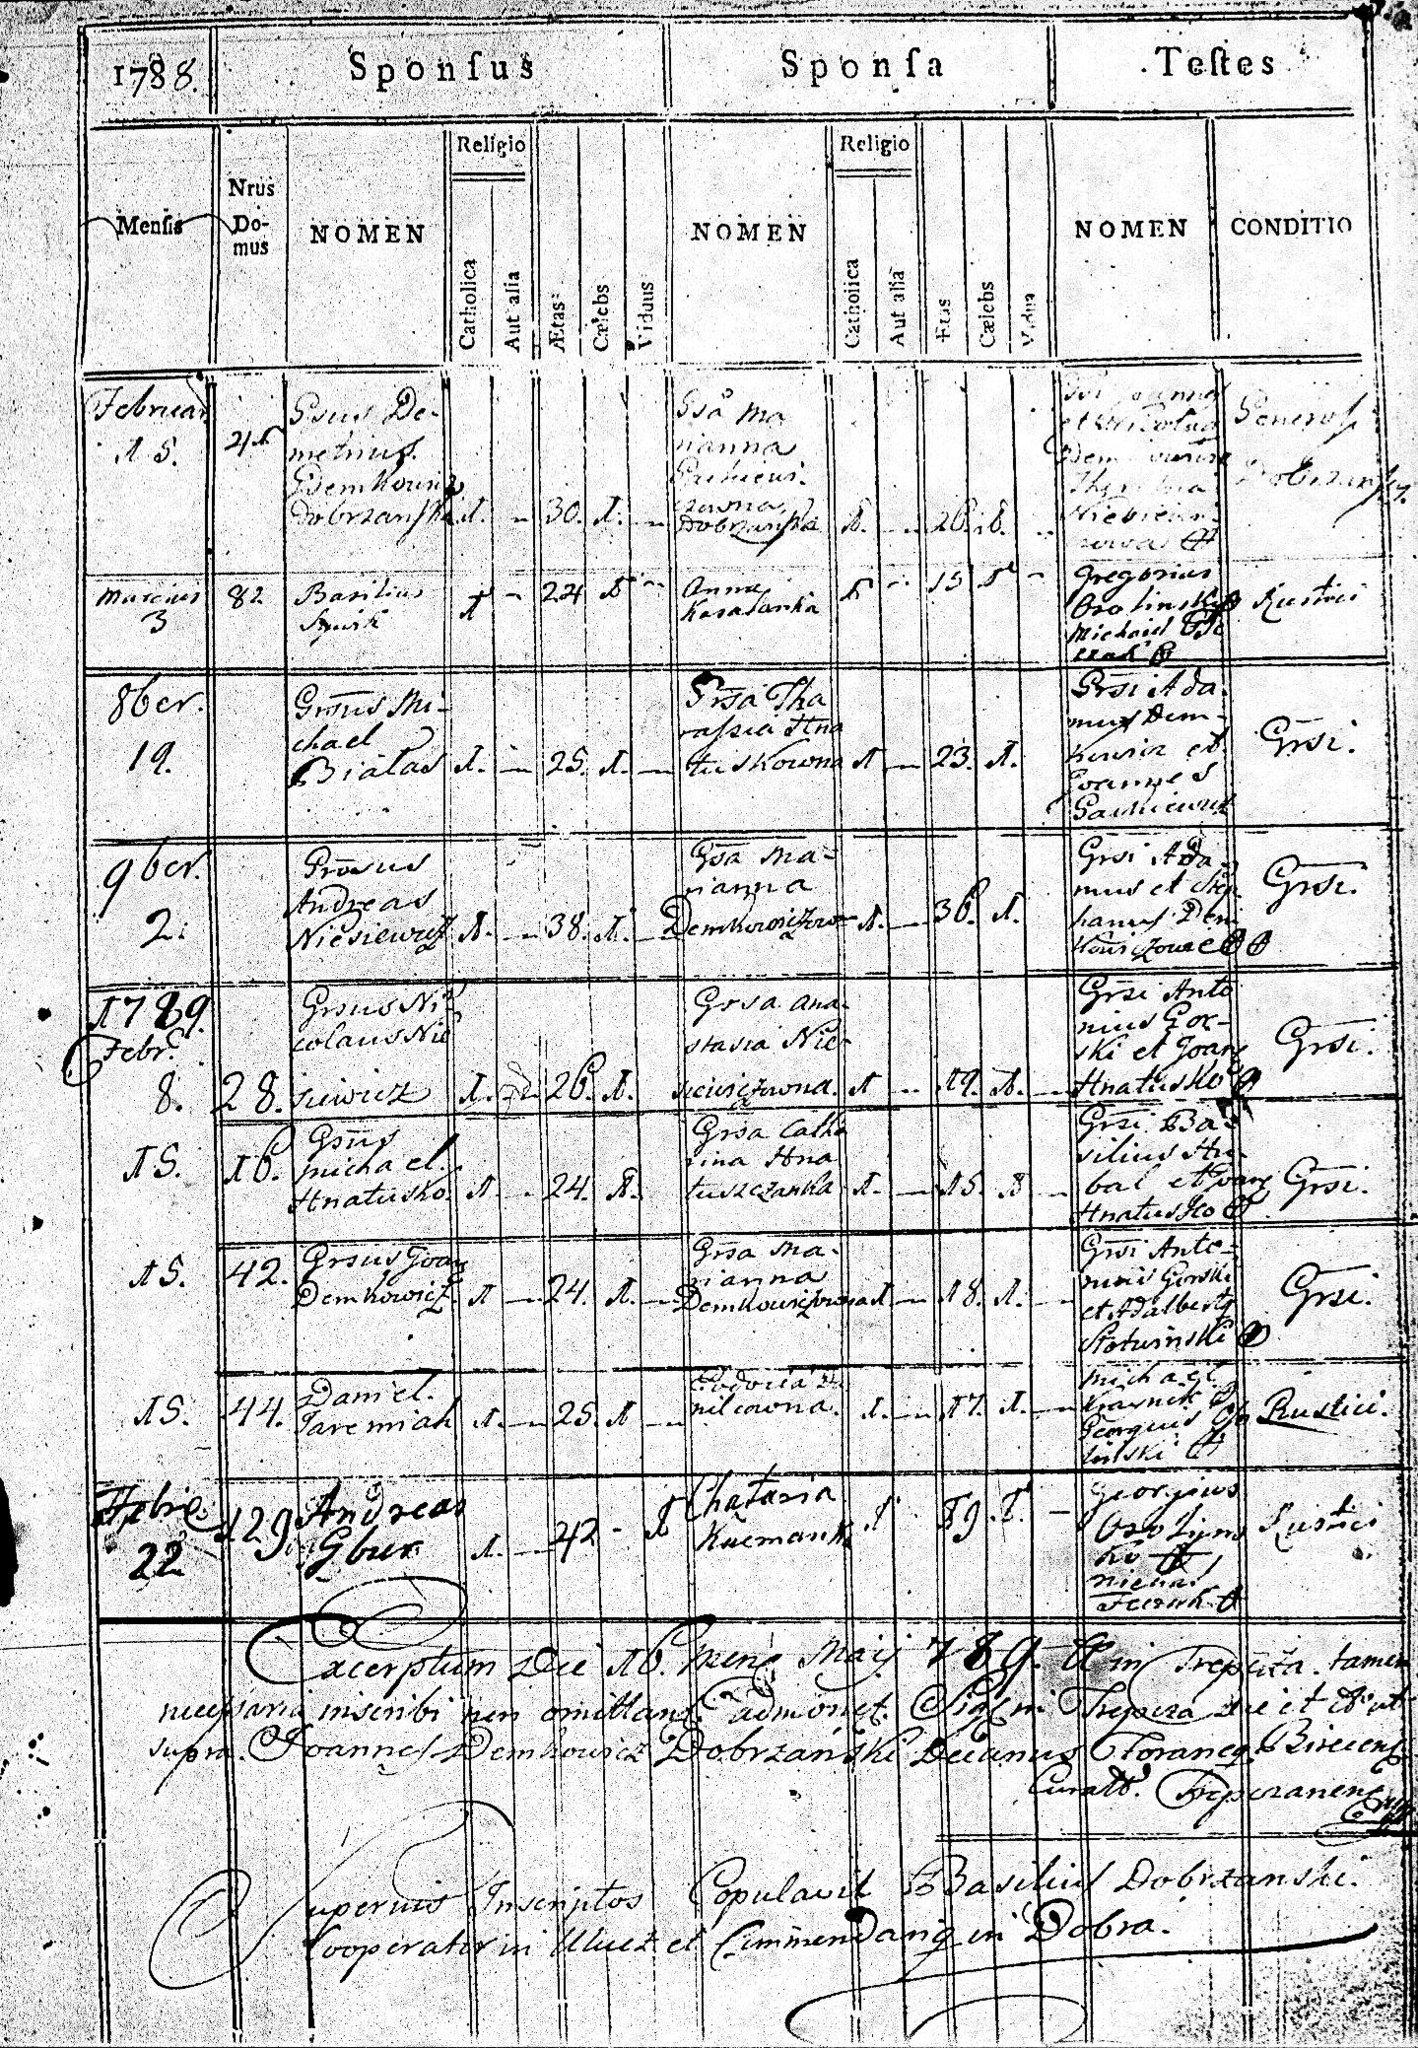 1788. Sponſus Sponſa Teſtes
Menſis Nrus Domus NOMEN Religio Catholica Aut alia Ætas Cælebs Viduus NOMEN Religio Catholica Aut alia Ætas Cælebs Vidua NOMEN CONDITIO
Februar.
15.
Gsus De-
metrius
Demkowicz
Dobrzanski 1. - 30. 1. -
Gsa Ma
rianna
Dobrzanska
Generosi
Dobrzanscy.
Marcius
3
82
Basilius
1 - 24 1 -
Anna
Kasalanka
1 - 15 1 -
Gregorius
Osolinski
Michael
Rustici
8ber.
19.
Grsus Mi-
chael
Białas 1. - 25. 1. -
Grsa Tha
rassia Hna
tuskowna 1 - 23. 1.
Grsi Ada-
mus Dem-
kowicz et
Joannes
Grsi.
9ber.
2.
Grosus
Andreas
Niesiewicz 1. - 38. 1. -
Gsa Ma-
rianna
Demkowiczow- 1. - 36. 1.
Grsi Ada-
mus et Step
hanus Dem
kowiczowie
Grsi.
1789.
Febr.
8. 28.
Grsus Ni-
colaus Nie
siewicz 1. - 26. 1.
Grsa Ana-
stasia Nie-
siewiczowna. 1 - 19. 1. -
Grsi Anto
nius Gor-
ski et Joan
Hnatusko
Grsi.
15. 16.
Gsus
Michael
Hnatusko. 1. - 24. 1.
Grsa Catha
rina Hna
tuszczanka 1. - 15. 1 -
Grsi Ba-
silius Hu-
bal et Joan
Hnatusko
Grsi.
15. 42.
Grsus Joan
Demkowicz. 1 - 24. 1. -
Grsa Ma-
rianna
Demkowiczowna 1 - 18. 1. -
Grsi Anto-
nius Gorski
et Adalbertg
Słotwinski
Grsi.
15. 44.
Daniel
Jaremiak 1. - 25. 1 -
nilcowna. 1. - 17. 1. -
Michael
Georgius
Rustici.
Febr
22
129
Andreas
Gbur 1. - 42 - 1
Chataria
Kucmank
1 - 19 1 -
Georgius
Osolins
ki
Michael
Rustici
Excerptum Die 16. Mens Maij 789. in Trepcza tamen
necessaria inscribi non omittant admonet. Sig m Trepcza die et A ut
supra. Joannes Demkowicz Dobrzański Decanus Foraneg Birecens
Curatt. Trepczanens
Superius Inscriptos Copulavit Basilius Dobrzanski.
Cooperator in Ulucz et Commendang in Dobra.